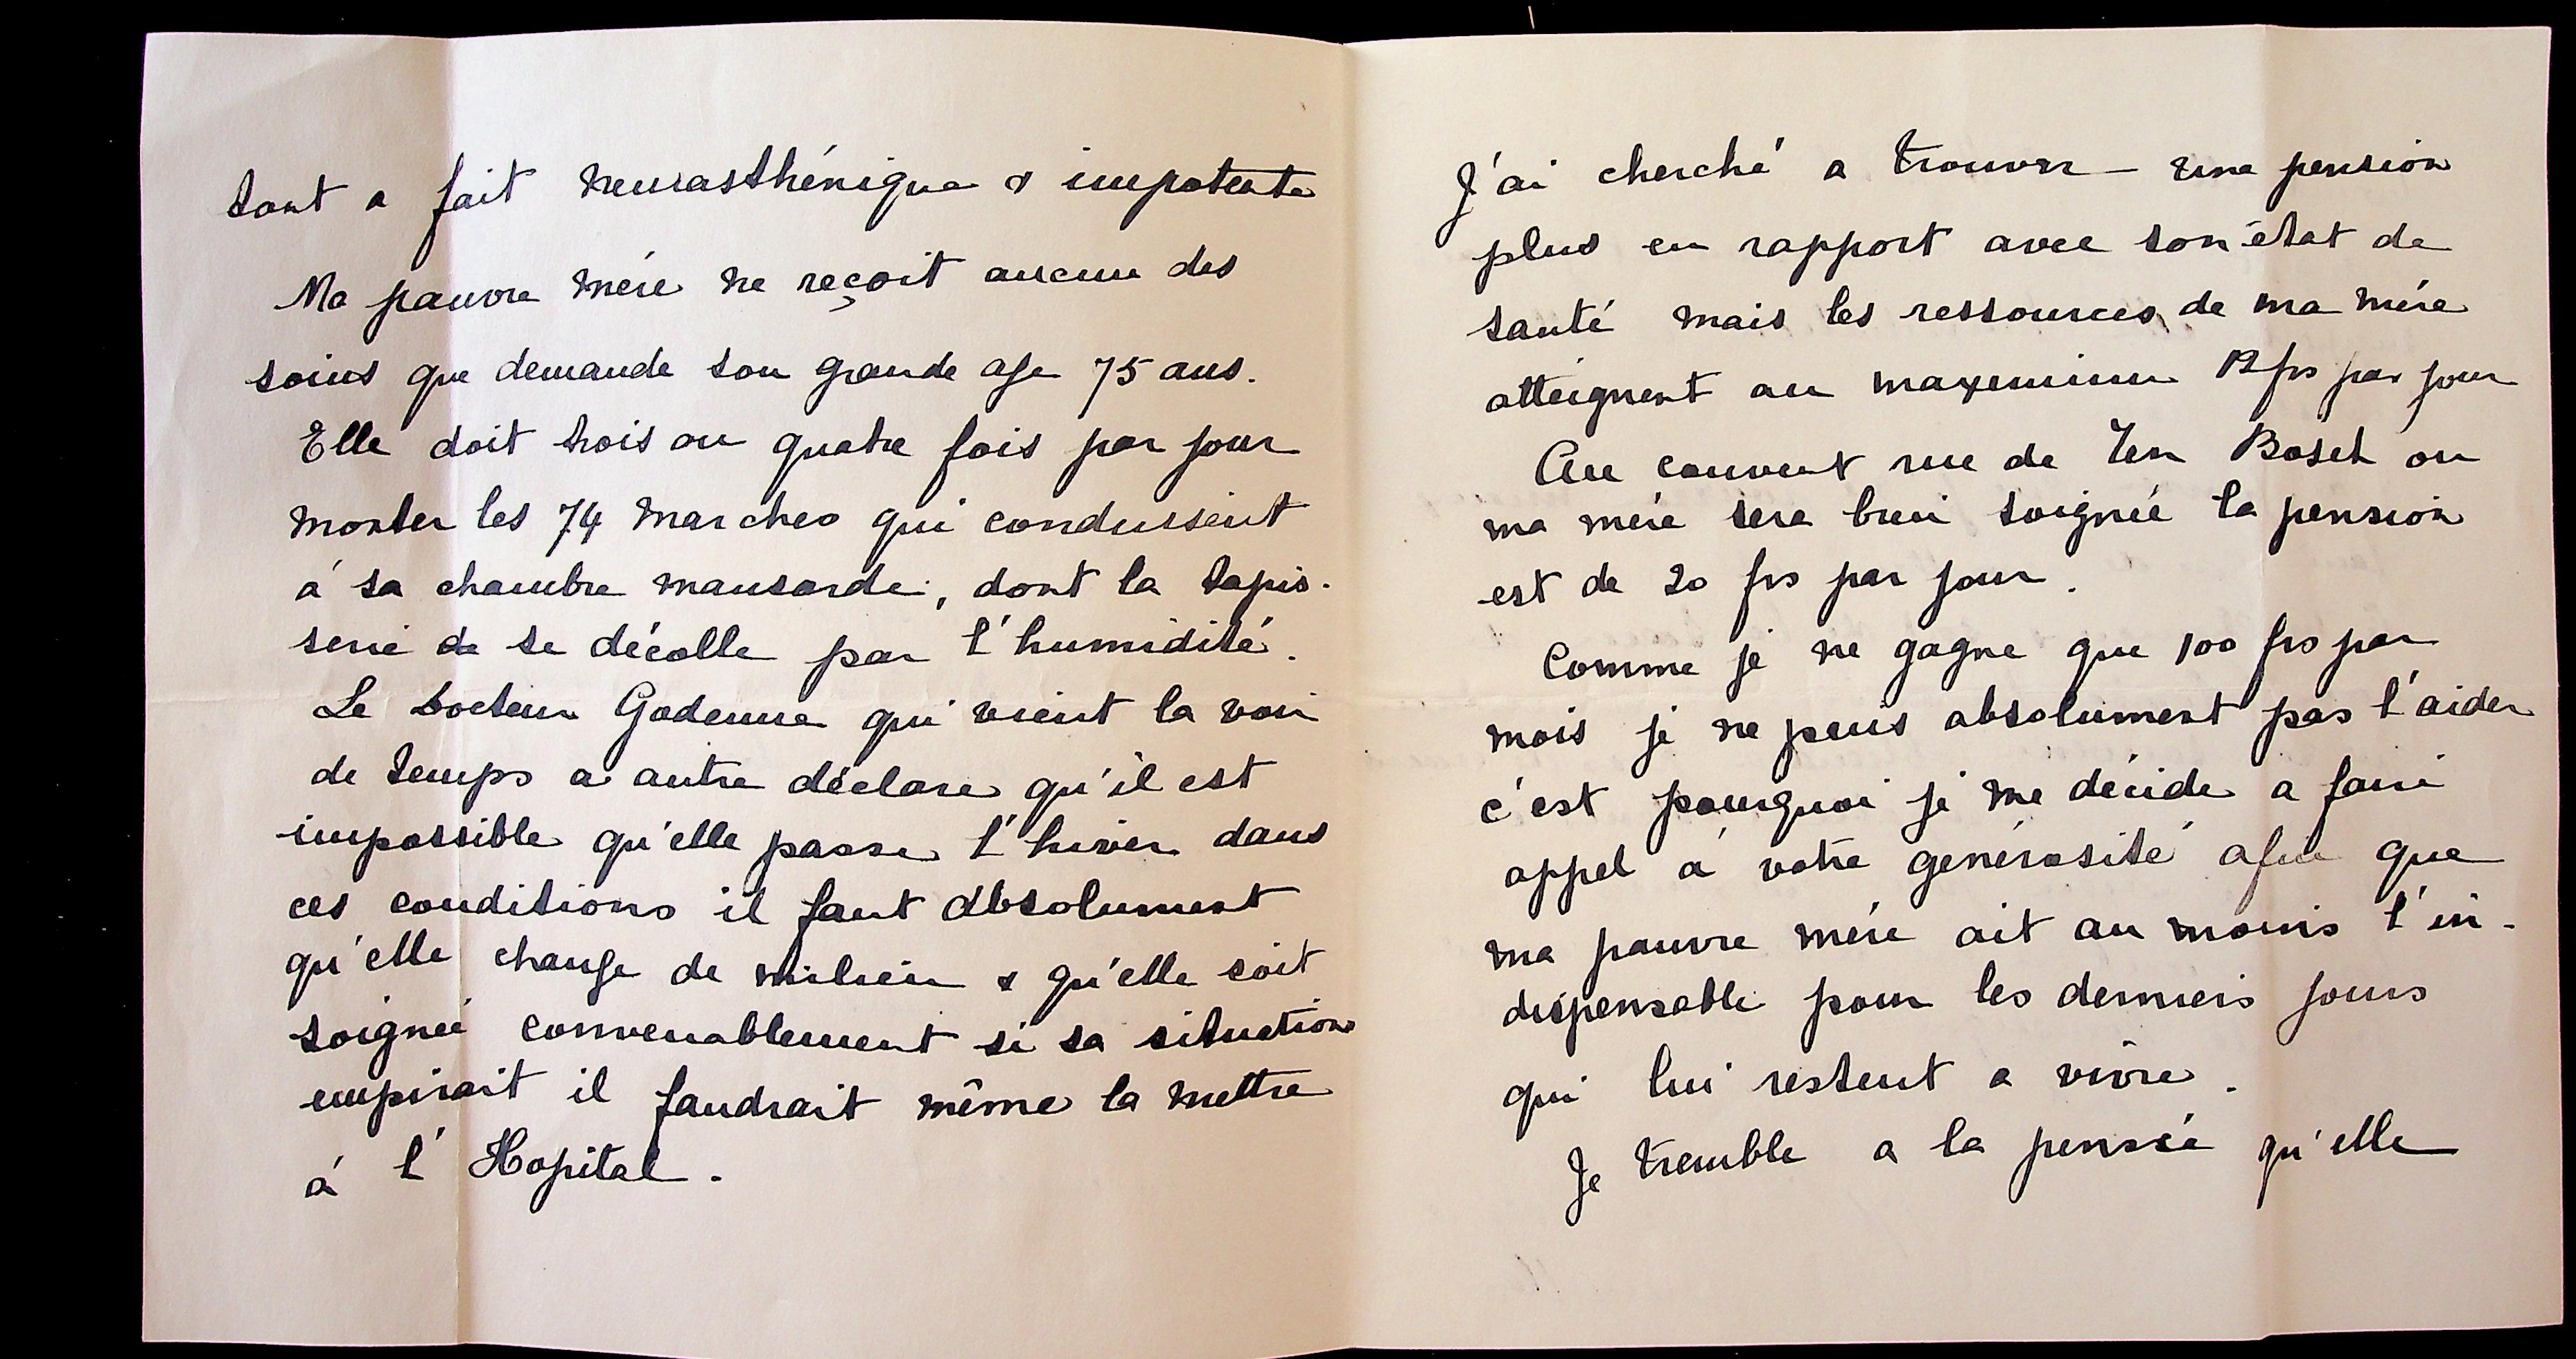 tout a fait neurasthénique & impotente
Ma pauvre mère ne reçoit aucun des
soins que demande son grande age 75 ans.
Elle doit trois ou quatre fois par jour
monter les 74 marches qui conduisent
à sa chambre mansarde, dont la tapis-
serie de se décolle par l'humidité.
Le Docteur Godenne qui vient la voir
de temps a autre déclare qu'il est
impossible qu'elle passe l'hiver dans
ces conditions il faut absolument
qu'elle change de milieu & qu'elle soit
soignée convenablement si sa situation
empirait il faudrait même la mettre
à l'Hopital.
J'ai cherché a trouver – une pension
plus en rapport avec son état de
santé mais les ressources de ma mère
atteignent au maxemimum frs par jour
Au couvent rue de Ten Bosch ou
ma mère sera bien soignée la pension
est de 20 frs par jour.
Comme je ne gagne que 100 frs par
mois je ne peus absolument pas l'aider
c'est pourquoi je me décide a faire
appel à votre genérosité afin que
ma pauvre mère ait au moins l'in-
dispensable pour les derniers jours
qui lui restent a vivre.
Je tremble a la pensée qu'elle